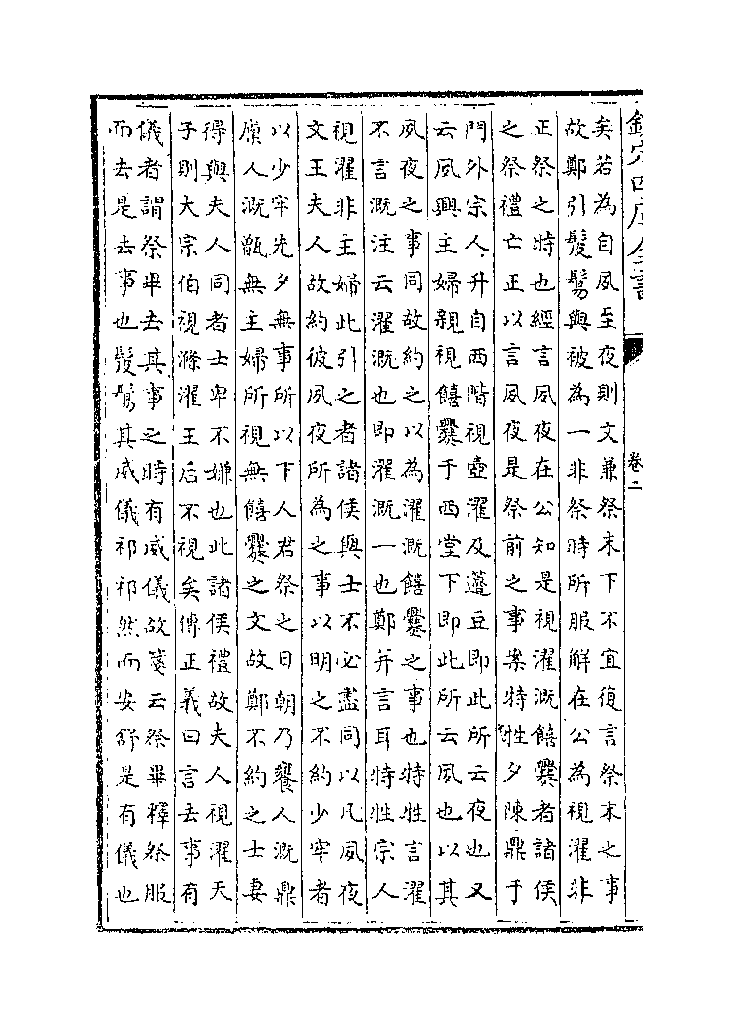 欽定四庫全書
卷二
矣若為自夙至夜則文兼祭末下不宜復言祭末之事
故鄭引髲鬄與被為一非祭時所服解在公為視濯非
正祭之時也經言夙夜在公知是視濯溉饎爨者諸侯
之祭禮亡正以言夙夜是祭前之事案特牲夕陳鼎于
門外宗人升自西階視壺濯及籩豆即此所云夜也又
云夙興主婦親視饎爨于西堂下即此所云夙也以其
夙夜之事同故約之以為濯溉饎爨之事也特牲言濯
不言溉注云濯溉也即濯溉一也鄭并言耳特牲宗人
視濯非主婦此引之者諸侯與士不必盡同以凡夙夜
文王夫人故約彼夙夜所為之事以明之不約少牢者
以少牢先夕無事所以下人君祭之日朝乃饔人溉鼎
廩人溉甑無主婦所視無饎爨之文故鄭不約之士妻
得與夫人同者士卑不嫌也此諸侯禮故夫人視濯天
子則大宗伯視滌濯王后不視矣傳正義曰言去事有
儀者謂祭畢去其事之時有威儀故箋云祭畢釋祭服
而去是去事也髲鬄其威儀祁祁然而安舒是有儀也